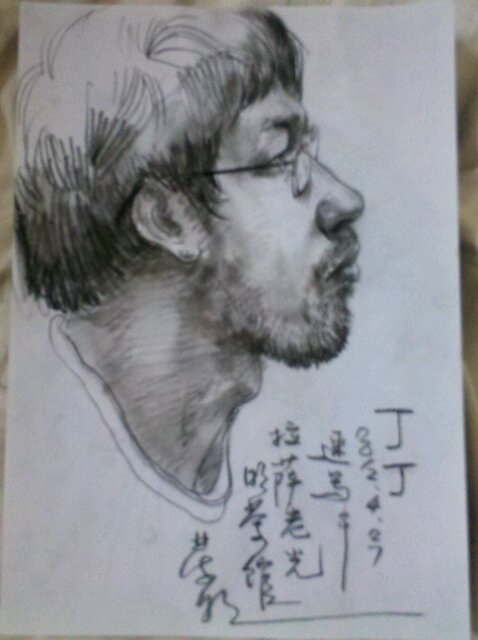 丁丁
2012.4.07
速写于
拉萨老光
明茶馆